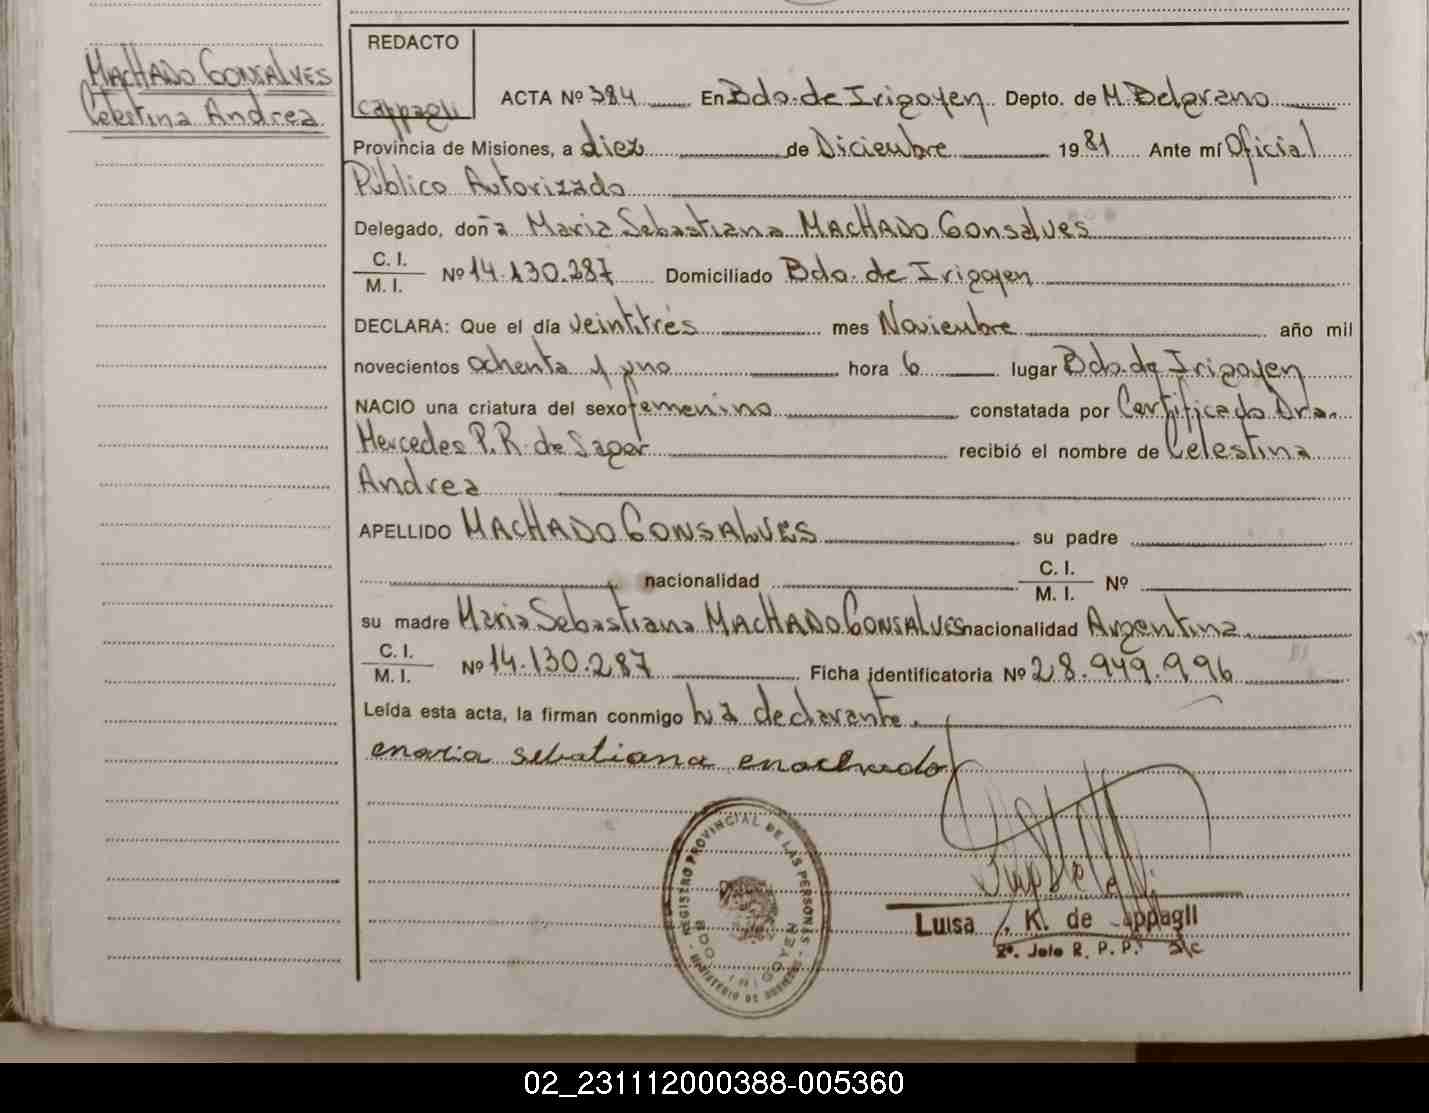 MACHADO GONSALVES
Celestina Andrea
REDACTO
Cappagli
ACTA Nº 384 En Bdo. de Irigoyen Depto. de M. Belgrano
Provincia de Misiones, a diez de Diciembre 1981 Ante mí Oficial
Público Autorizado
Delegado, doña María Sebastiana MACHADO Gonsalves
C. I.
M. I. Nº 14.130.287 Domiciliado Bdo. de Irigoyen
DECLARA: Que el día veintitrés mes Noviembre año mil
novecientos ochenta y uno hora 6 lugar Bdo. de Irigoyen
NACIO una criatura del sexo femenino constatada por Certificado Dra.
Mercedes P. R. de Sager recibió el nombre de Celestina
Andrea
APELLIDO MACHADO GONSALVES su padre
nacionalidad C. I.
M. I. Nº
su madre María Sebastiana MACHADO GONSALVES nacionalidad Argentina
C. I.
M. I. Nº 14.130.287 Ficha identificatoria Nº 28.949.996
Leída esta acta, la firman conmigo La declarante.
maria sebatiana machado
REGISTRO PROVINCIAL DE LAS PERSONAS
MINISTERIO DE GOBIERNO
BDO. IRIGOYEN
Luisa K. de Cappagli
2º. Jefe R. P. P. S/C
02_231112000388-005360